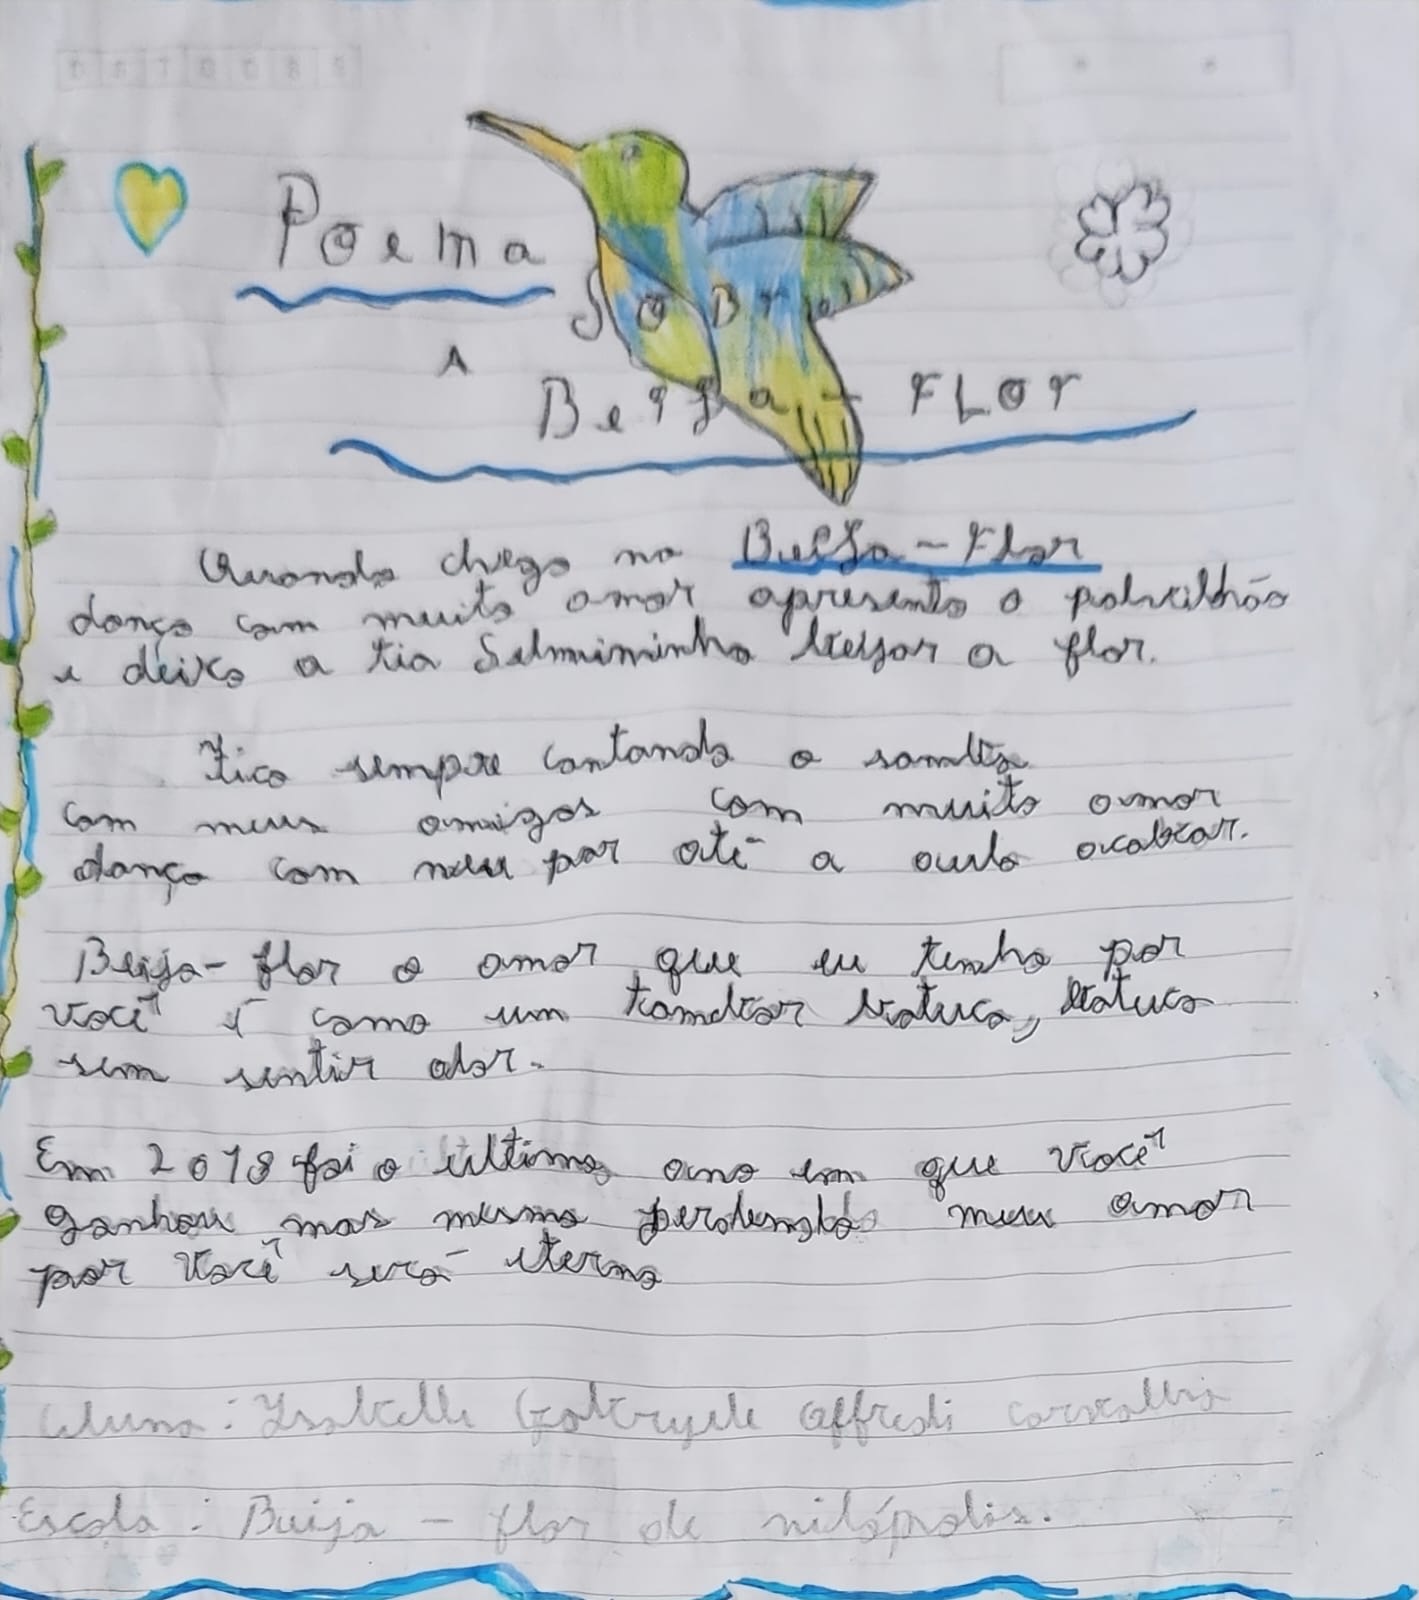 Poema
sobre
A
Beija-FLOR
Quando chego na Beija-Flor
danço com muito amor apresento o polvilhão
e deixo a tia Selmiminha beijar a flor.
Fico sempre cantando o samba
com meus amigos com muito amor
danço com meu par até a aula acabar.
Beija-flor o amor que eu tenho por
você é como um tambor batuca, batuca
sem sentir dor.
Em 2018 foi o último ano em que você
ganhou mas mesmo perdendo meu amor
por você será eterno
Aluna: Isabelle Gabryele Carvalho
Escola: Beija-flor de nilópolis.